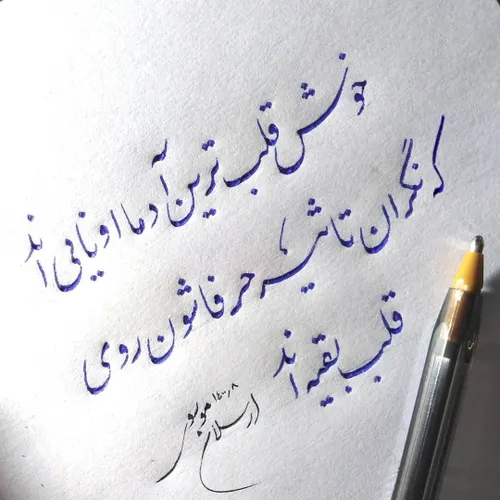 خوش قلب ترین آدما اونایی اند
که نگران تاثیر حرفاشون روی
قلب بقیه اند
ارسلان موسوی
۱۴۰۰/۸